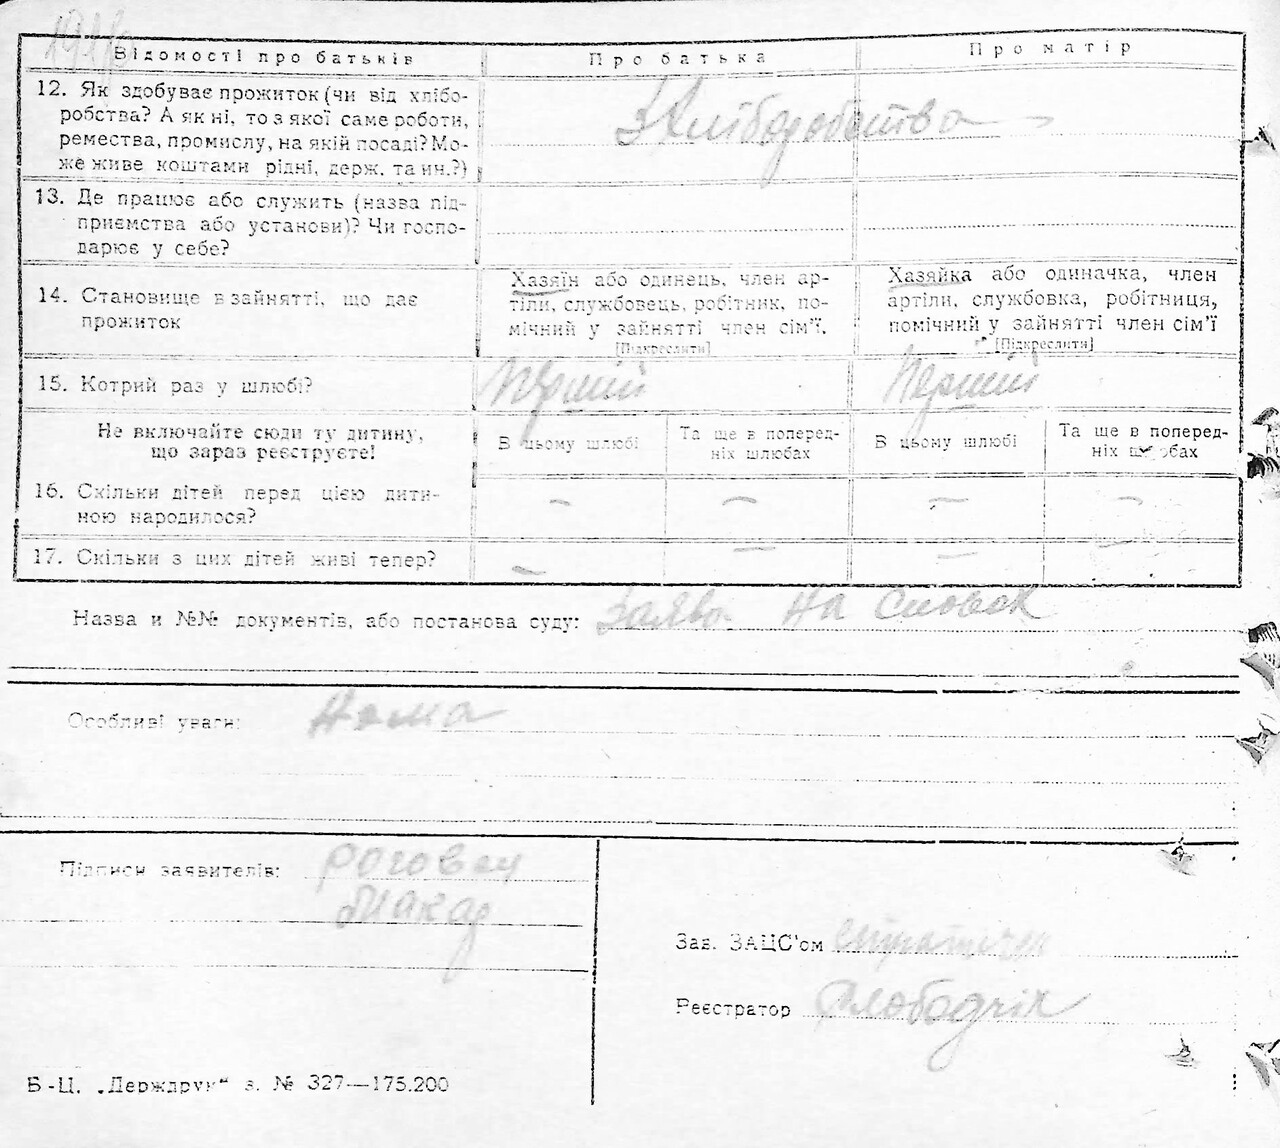 Відомості про батьків
Про батька
Про матір
12. Як здобуває прожиток (чи від хлібо-
робства? А як ні, то з якої саме роботи,
ремества, промислу, на якій посаді? Мо-
же живе коштами рідні, держ. та ин.?)
З Хліборобства
13. Де працює або служить (назва під-
приємства або установи)? Чи госпо-
дарює у себе?
14. Становище в зайнятті, що дає
прожиток
Хазяїн або одинець, член ар-
тіли, службовець, робітник, по-
мічний у зайнятті член сім'ї.
[Підкреслити]
Хазяйка або одиначка, член
артіли, службовка, робітниця,
помічний у зайнятті член сім'ї
[Підкреслити]
15. Котрий раз у шлюбі?
Перший
Перший
Не включайте сюди ту дитину,
що зараз реєструєте!
В цьому шлюбі
Та ще в поперед-
ніх шлюбах
В цьому шлюбі
Та ще в поперед-
ніх шлюбах
16. Скільки дітей перед цією дити-
ною народилося?
— — —
17. Скільки з цих дітей живі тепер?
— — — —
Назва и №№ документів, або постанова суду: Заява на словах
Особливі уваги: Нема
Підписи заявителів: Роговец
Макар
Зав. ЗАЦС'ом
Реєстратор Слободчік
Б-Ц. „Держдрук“ з. № 327—175.200